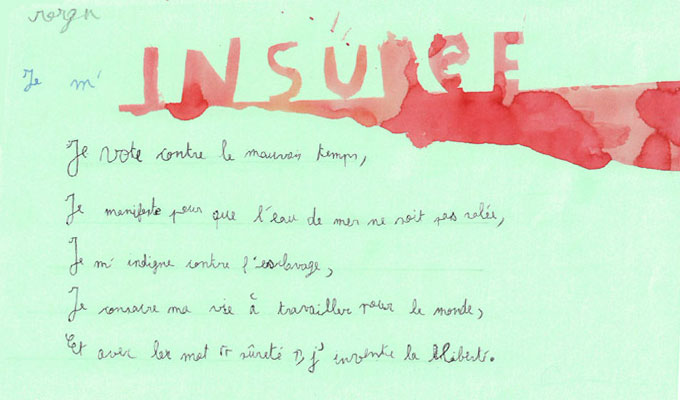 Je m' INSURGE
Je vote contre le mauvais temps,
Je manifeste pour que l'eau de mer ne soit pas salée,
Je m'indigne contre l'esclavage,
Je consacre ma vie à travailler pour le monde,
Et avec les mot " sûreté ", j'invente la liberté.